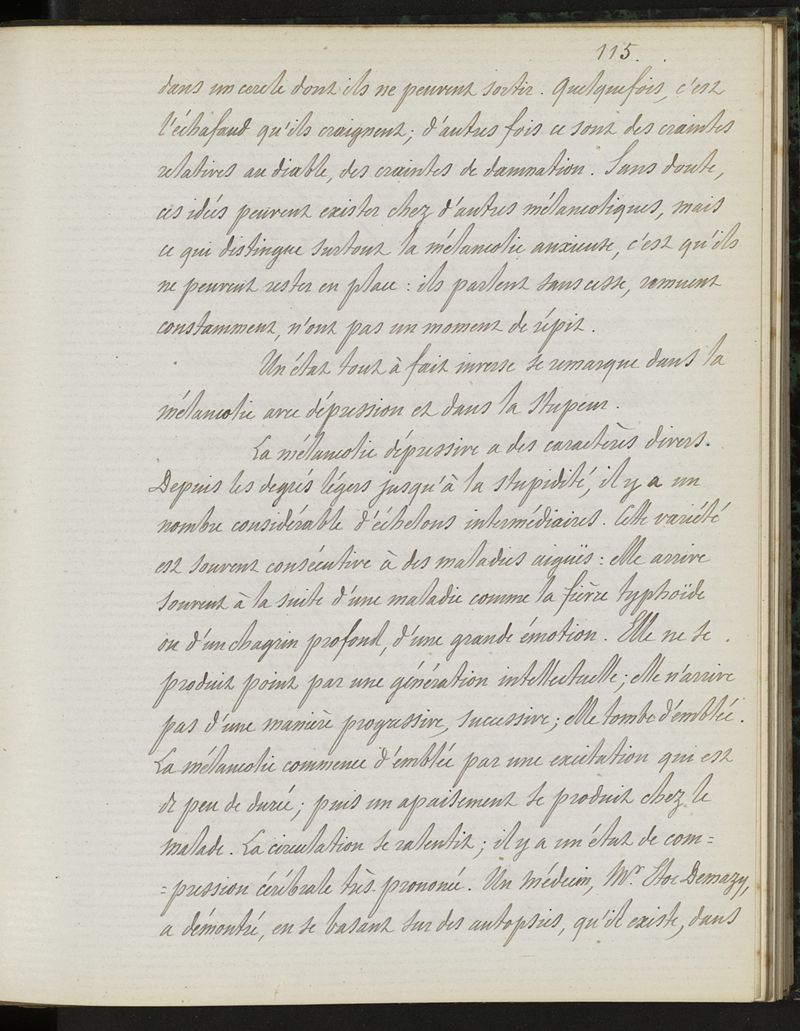 115.
dans un cercle dont ils ne peuvent sortir. Quelquefois, c'est
l'échafaud qu'ils craignent; d'autres fois ce sont des craintes
relatives au diable, des craintes de damnation. Sans doute,
ces idées peuvent exister chez d'autres mélancoliques, mais
ce qui distingue surtout la mélancolie anxieuse, c'est qu'ils
ne peuvent rester en place: ils parlent sans cesse, remuent
constamment, n'ont pas un moment de répit.
Un état tout à fait inverse se remarque dans la
mélancolie avec dépression et dans la stupeur.
La mélancolie dépressive a des caractères divers.
Depuis les degrés légers jusqu'à la stupidité, il y a un
nombre considérable d'échelons intermédiaires. Cette variété
est souvent consécutive à des maladies aiguës: elle arrive
souvent à la suite d'une maladie comme la fièvre typhoïde
ou d'un chagrin profond, d'une grande émotion. Elle ne se
produit point par une génération intellectuelle; elle n'arrive
pas d'une manière progressive, successive; elle tombe d'emblée.
La mélancolie commence d'emblée par une excitation qui est
de peu de durée; puis un apaisement se produit chez le
malade. La circulation se ralentit; il y a un état de com=
=pression cérébrale très prononcé. Un médecin, Mr. Etoc Demazy,
a démontré, en se basant sur des autopsies, qu'il existe, dans